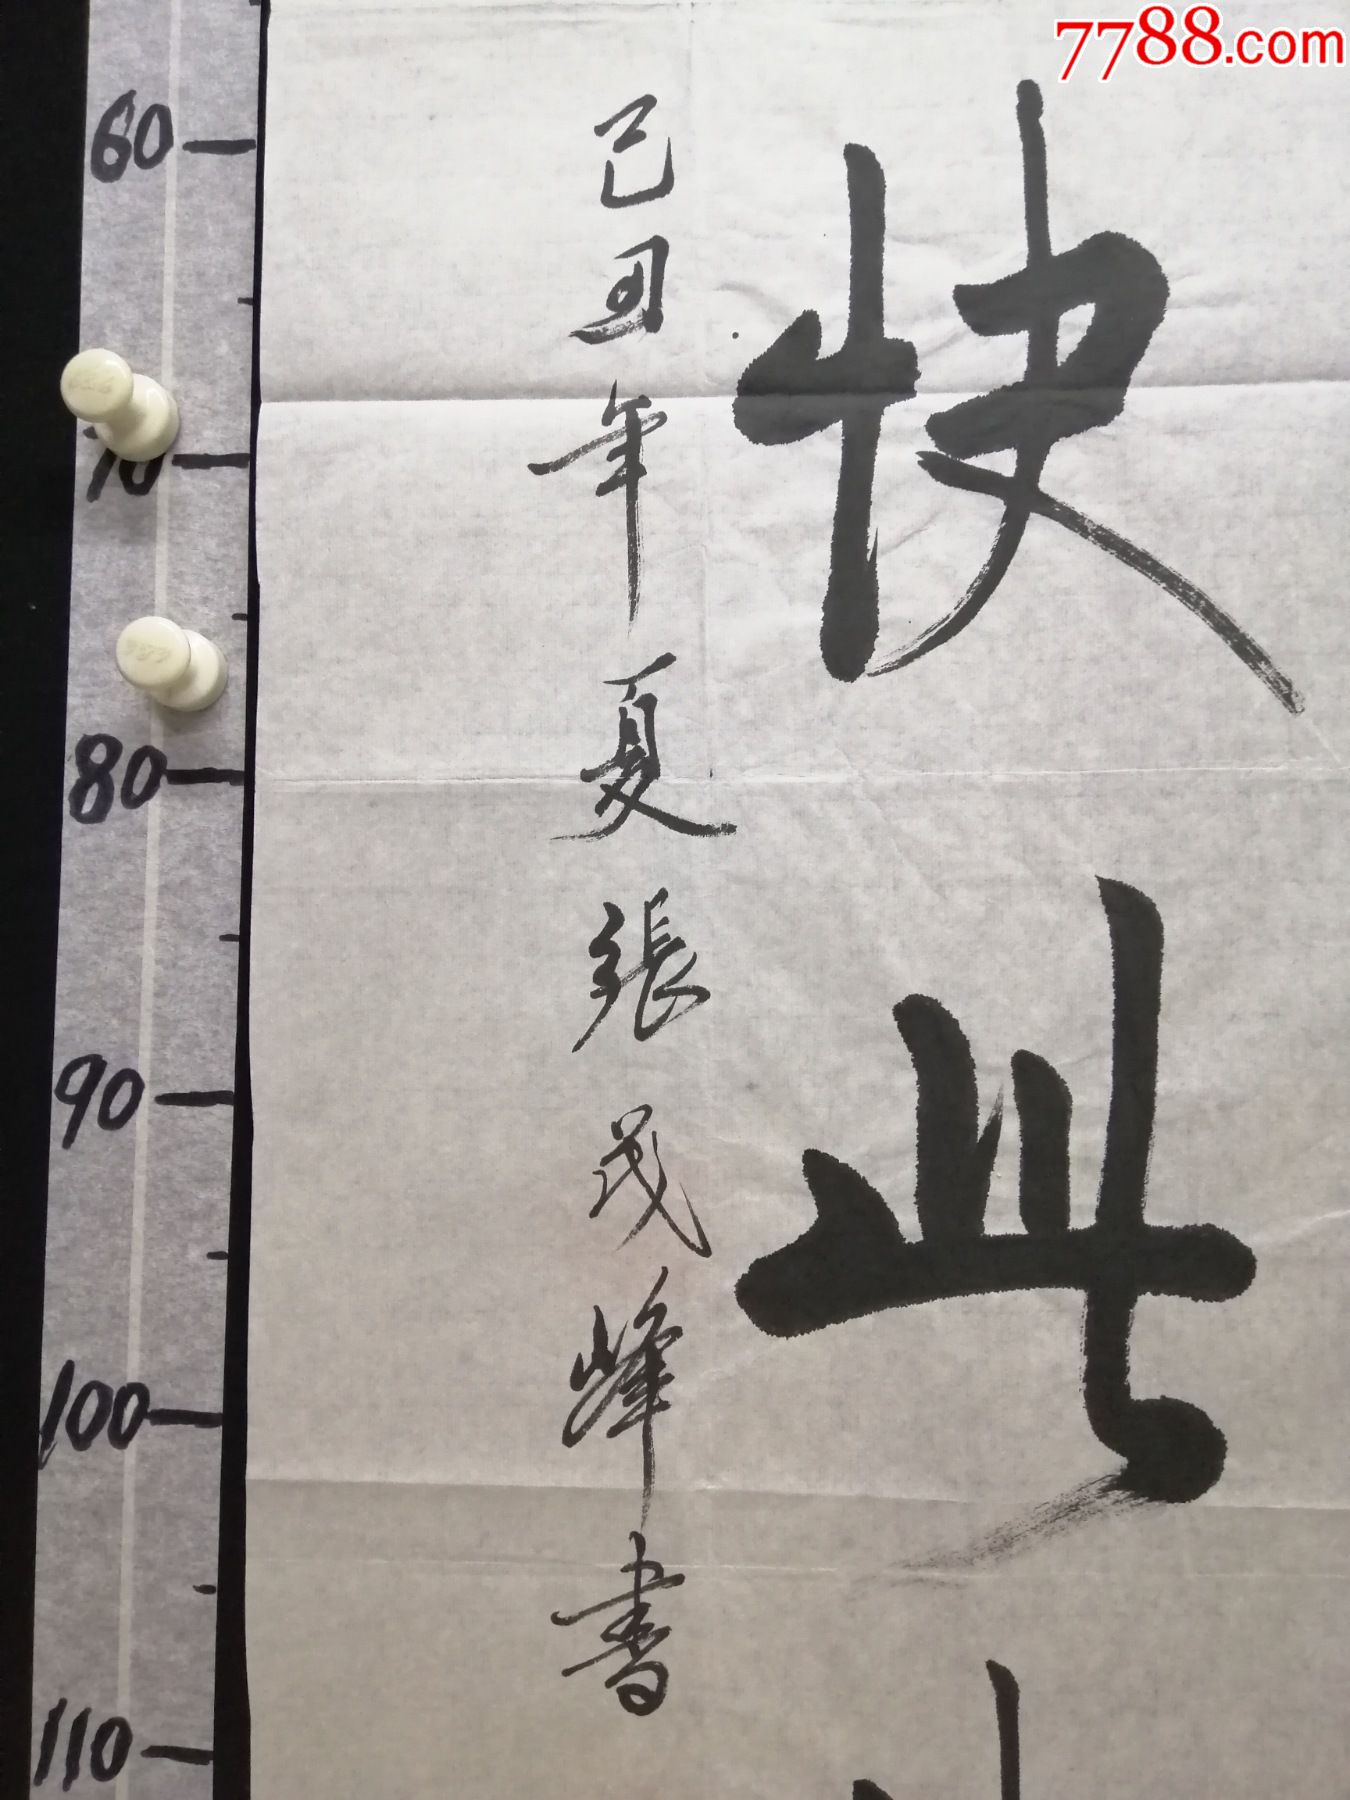 7788.com
快此
己丑年夏張茂峰書
60
70
80
90
100
110